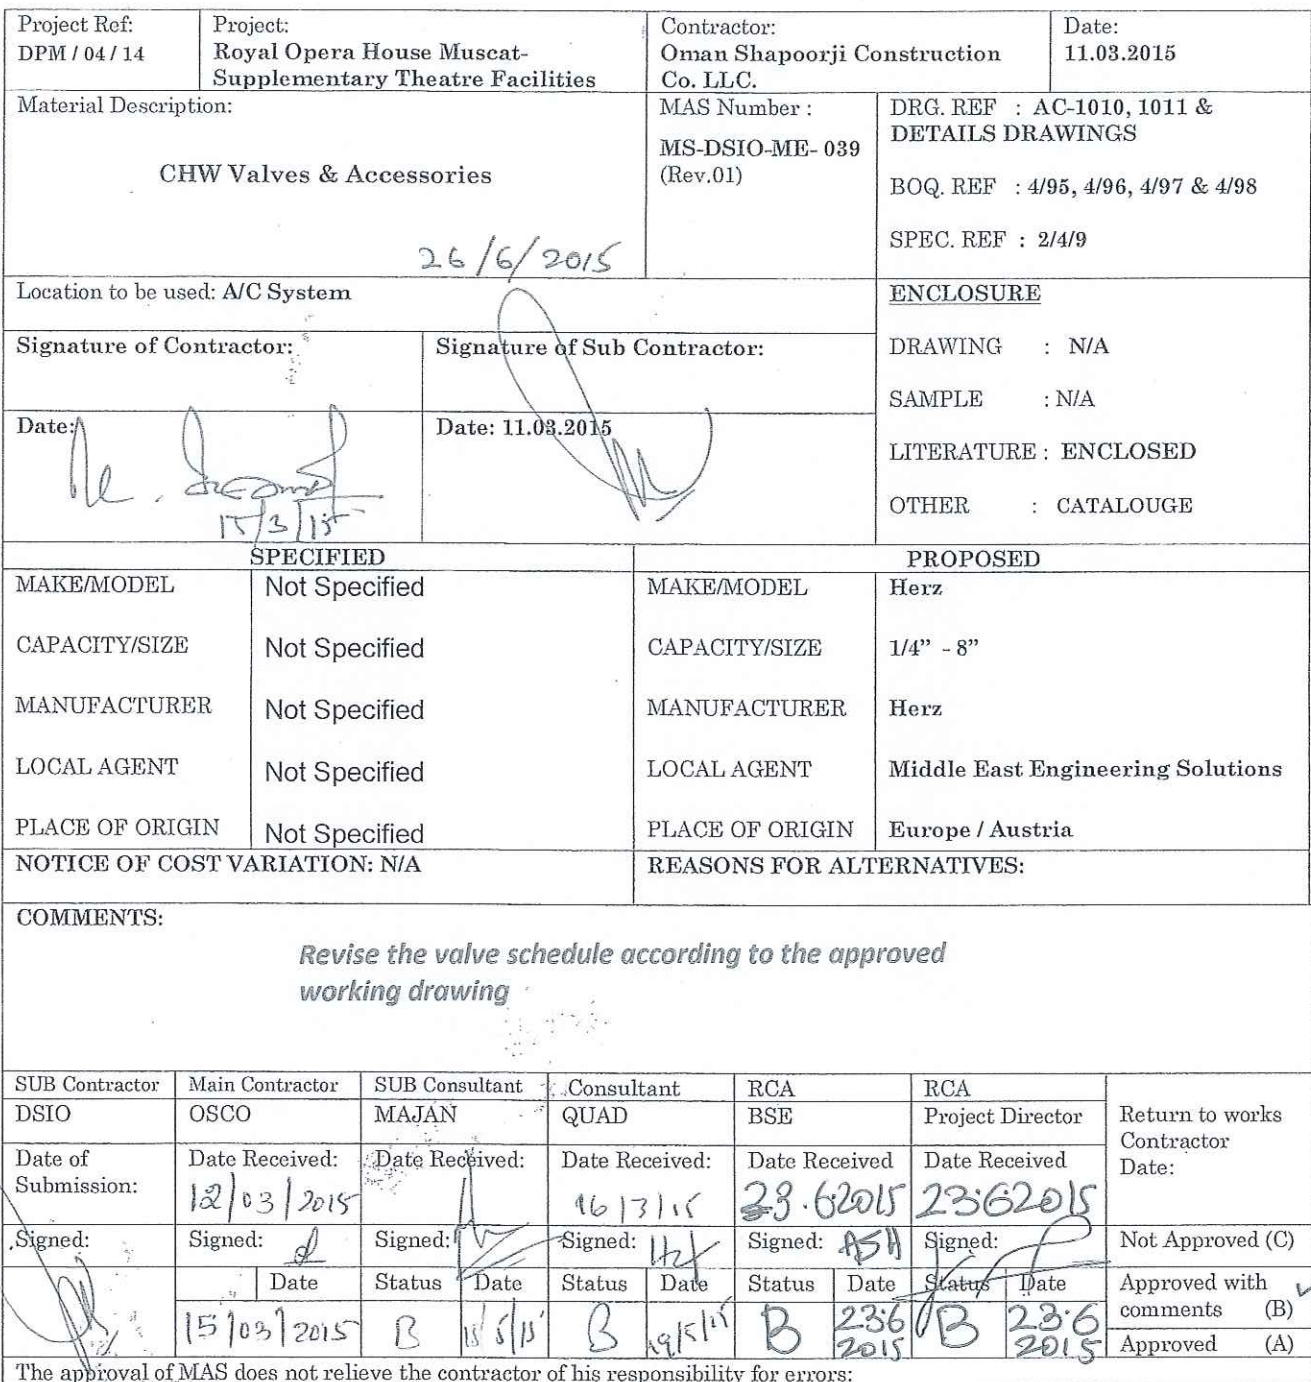 Project Ref:
DPM / 04 / 14
Project:
Royal Opera House Muscat-
Supplementary Theatre Facilities
Contractor:
Oman Shapoorji Construction
Co. LLC.
Date:
11.03.2015
Material Description:
CHW Valves & Accessories
26/6/2015
MAS Number :
MS-DSIO-ME- 039
(Rev.01)
DRG. REF : AC-1010, 1011 &
DETAILS DRAWINGS
BOQ. REF : 4/95, 4/96, 4/97 & 4/98
SPEC. REF : 2/4/9
Location to be used: A/C System
ENCLOSURE
DRAWING : N/A
SAMPLE : N/A
LITERATURE : ENCLOSED
OTHER : CATALOUGE
Signature of Contractor:
Signature of Sub Contractor:
Date:
15/3/15
Date: 11.03.2015
SPECIFIED
PROPOSED
MAKE/MODEL Not Specified
MAKE/MODEL Herz
CAPACITY/SIZE Not Specified
CAPACITY/SIZE 1/4” - 8”
MANUFACTURER Not Specified
MANUFACTURER Herz
LOCAL AGENT Not Specified
LOCAL AGENT Middle East Engineering Solutions
PLACE OF ORIGIN Not Specified
PLACE OF ORIGIN Europe / Austria
NOTICE OF COST VARIATION: N/A
REASONS FOR ALTERNATIVES:
COMMENTS:
Revise the valve schedule according to the approved
working drawing
SUB Contractor Main Contractor SUB Consultant Consultant RCA RCA
DSIO OSCO MAJAN QUAD BSE Project Director
Return to works
Contractor
Date:
Date of
Submission:
Date Received:
12/03/2015
Date Received:
Date Received:
16/3/15
Date Received
23.6.2015
Date Received
23.6.2015
Signed: Signed: Signed: Signed: Signed: ASH Signed:
Not Approved (C)
Date Status Date Status Date Status Date Status Date
15/03/2015 B B 19/5/15 B 23.6 2015 B 23.6 2015
Approved with
comments (B) ✓
Approved (A)
The approval of MAS does not relieve the contractor of his responsibility for errors: